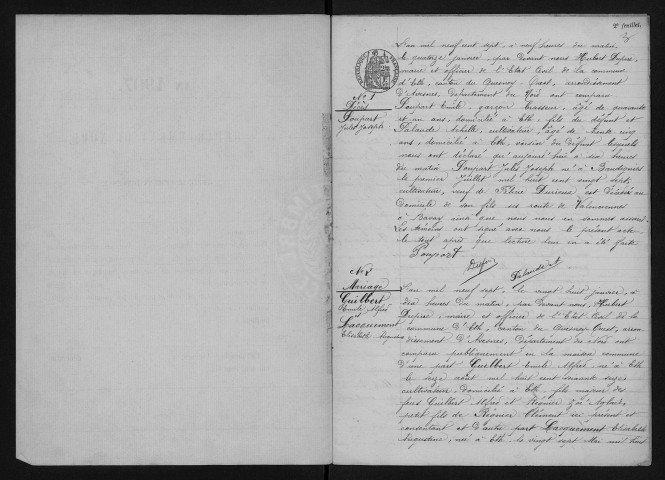 2e feuillet.
L'an mil neuf cent sept, à neuf heures du matin
le quatorze janvier, par devant nous Hubert Dupire,
maire et officier de l'Etat Civil de la commune
d'Eth, canton du Quesnoy Ouest, arrondissement
d'Avesnes, Département du Nord ont comparu
Poupart Emile, garçon brasseur, âgé de quarante
et un ans, domicilié à Eth, fils du défunt et
Palande Achille, cultivateur, âgé de trente cinq
ans, domicilié à Eth, voisin du défunt lesquels
nous ont déclaré qu'aujourd'hui à six heures
du matin Poupart Jules Joseph né à Baudignies
le premier Juillet mil huit cent vingt sept,
cultivateur, veuf de Durieux est décédé au
domicile de son fils sis route de Valenciennes
à Bavay ainsi que nous nous en sommes assuré.
Les témoins ont signé avec nous le présent acte
le tout après que lecture leur en a été faite
Poupart
Dupire
Palande A
No 1
Décès
Poupart
Jules Joseph
No 2
Mariage
Guilbert
Emile Alfred
et
Lacquement
Elisabeth Augustine
L'an mil neuf cent sept, le vingt huit janvier, à
dix heures du matin, par devant nous, Hubert
Dupire, maire et officier de l'Etat Civil de la
commune d'Eth, canton du Quesnoy Ouest, arron
dissement d'Avesnes, Département du Nord ont
comparu publiquement en la maison commune
d'une part Guilbert Emile Alfred né à Eth
le seize août mil huit cent soixante seize
cultivateur, domicilié à Eth, fils majeur des
feus Guilbert Alfred et Régnier Zoé Aglaé,
petit fils de Régnier Clément ici présent et
consentant et d'autre part Lacquement Elisabeth
Augustine, née à Eth le vingt sept Mai mil huit